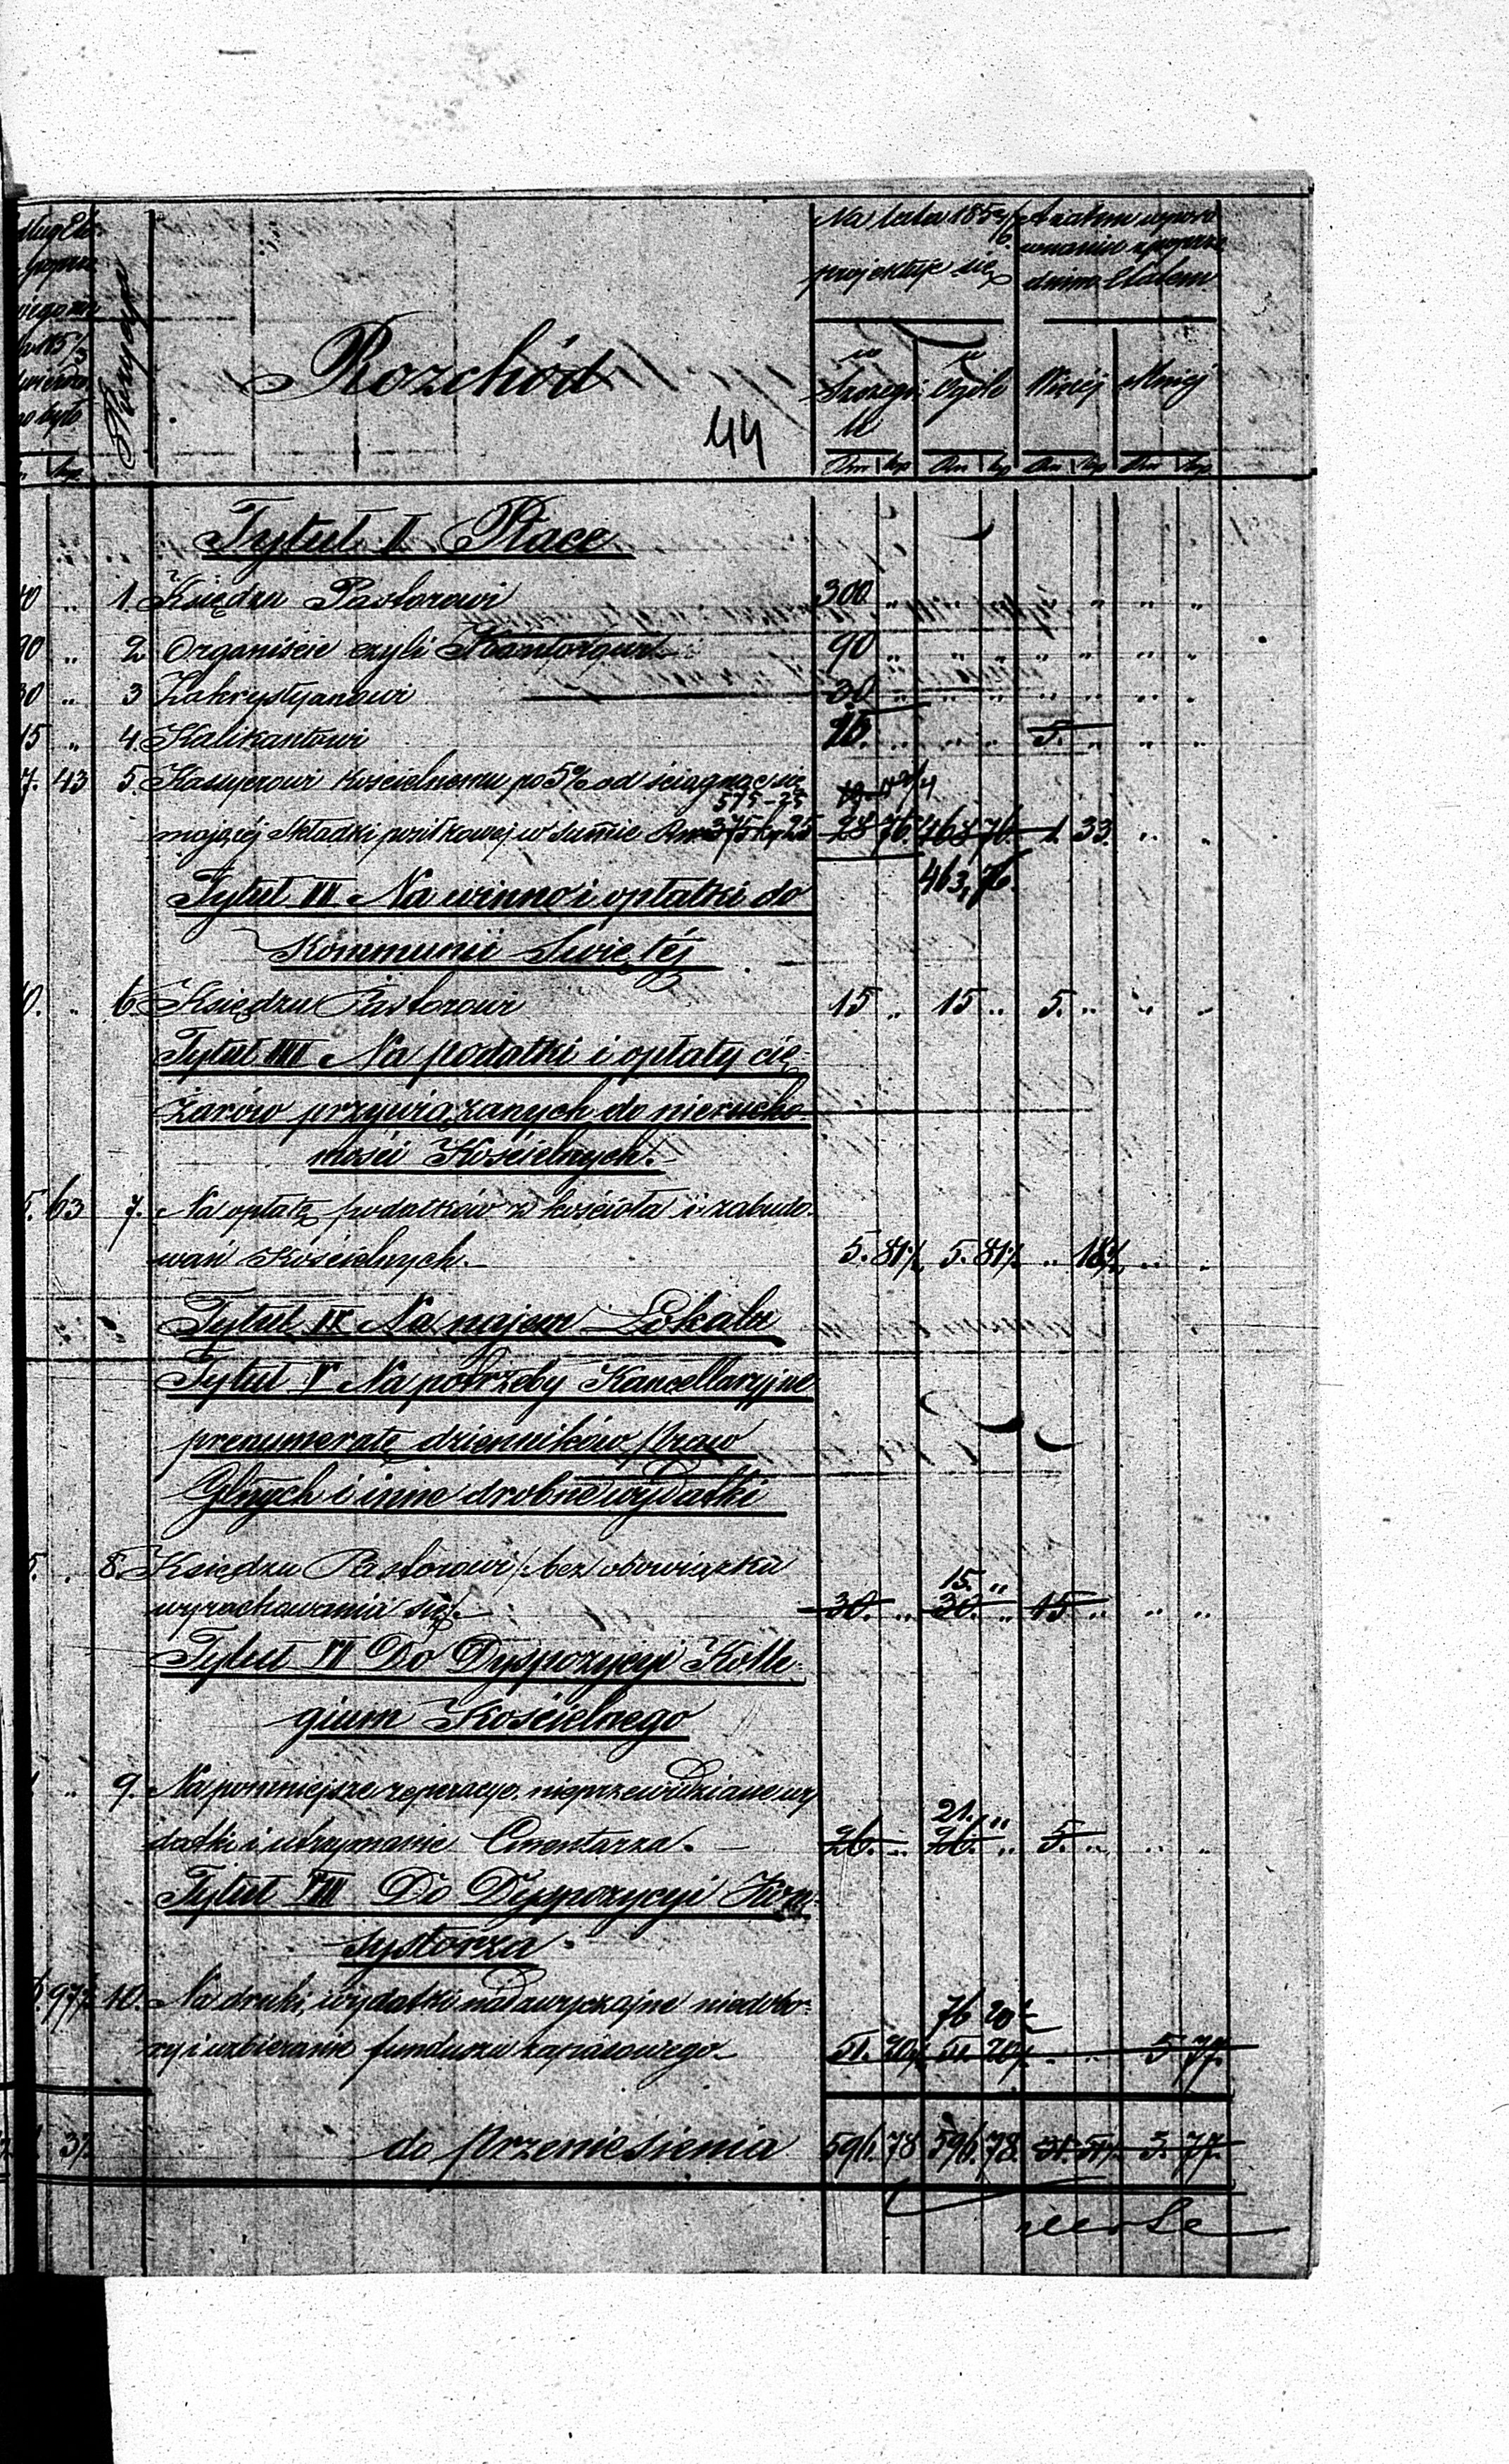 Na lata 185 4/6 A zatem w porównaniu z poprze
projektuje się dnim Etatem
Rozchód
w Szczególe w Ogóle Więcéj Mniej
44
Rsr kop Rsr kop Rsr kop Rsr kop
Tytuł I Płace
1. Księdzu Pastorowi 300 " " " " " " "
90 " 2 Organiście czyli Kantorowi 90 " " " " " " "
30 " 3 Zakrystyanowi 30 " " " " " " "
15 " 4. Kalikantowi " " " 5. " " "
7. 43 5. Kassyerowi Kościelnemu po 5% od ściągnąć się
575-25
mającéj składki pozitkowej w summie 28 76. 468 76. 1. 33. " "
463,76.
Tytuł II Na winno i opłatki do
Kommunii Świętéj
6. Księdzu Pastorowi 15 " 15 " 5. " " "
Tytuł III Na podatki i opłaty cię-
żarów przywiązanych do nierucho-
mości Kościelnych.
5. 63 7. Na opłatę podatków z kościoła i zabudo-
wań Kościelnych. 5. 81½ 5. 81½ " 18½ " "
Tytuł IV Na najem Lokalu
Tytuł V Na potrzeby Kancellaryjne
prenumeratę dzienników praw
Głnych i inne drobne wydatki
8. Księdzu Pastorowi /bez obowiązku
15. "
wyrachowania się/. 30. " 30. " 15 " " "
Tytuł VI Do Dyspozycyi Kolle-
gium Kościelnego
" 9. Na pomniejsze reperacye, nieprzewidziane wy
21. "
datki i utrzymanie Cmentarza. 26. " 26. " 5. " " "
Tytuł VII Do Dyspozycyi Kon-
systorza.
97½ 10. Na druki, wydatki nadzwyczajne niedobo-
76 20½
ry i uzbieranie funduszu zapasowego. 51. 20½ 51. 20½ " " 5 77.
37. do przeniesienia 596. 78 596. 78. 31. 51½. 5. 77.